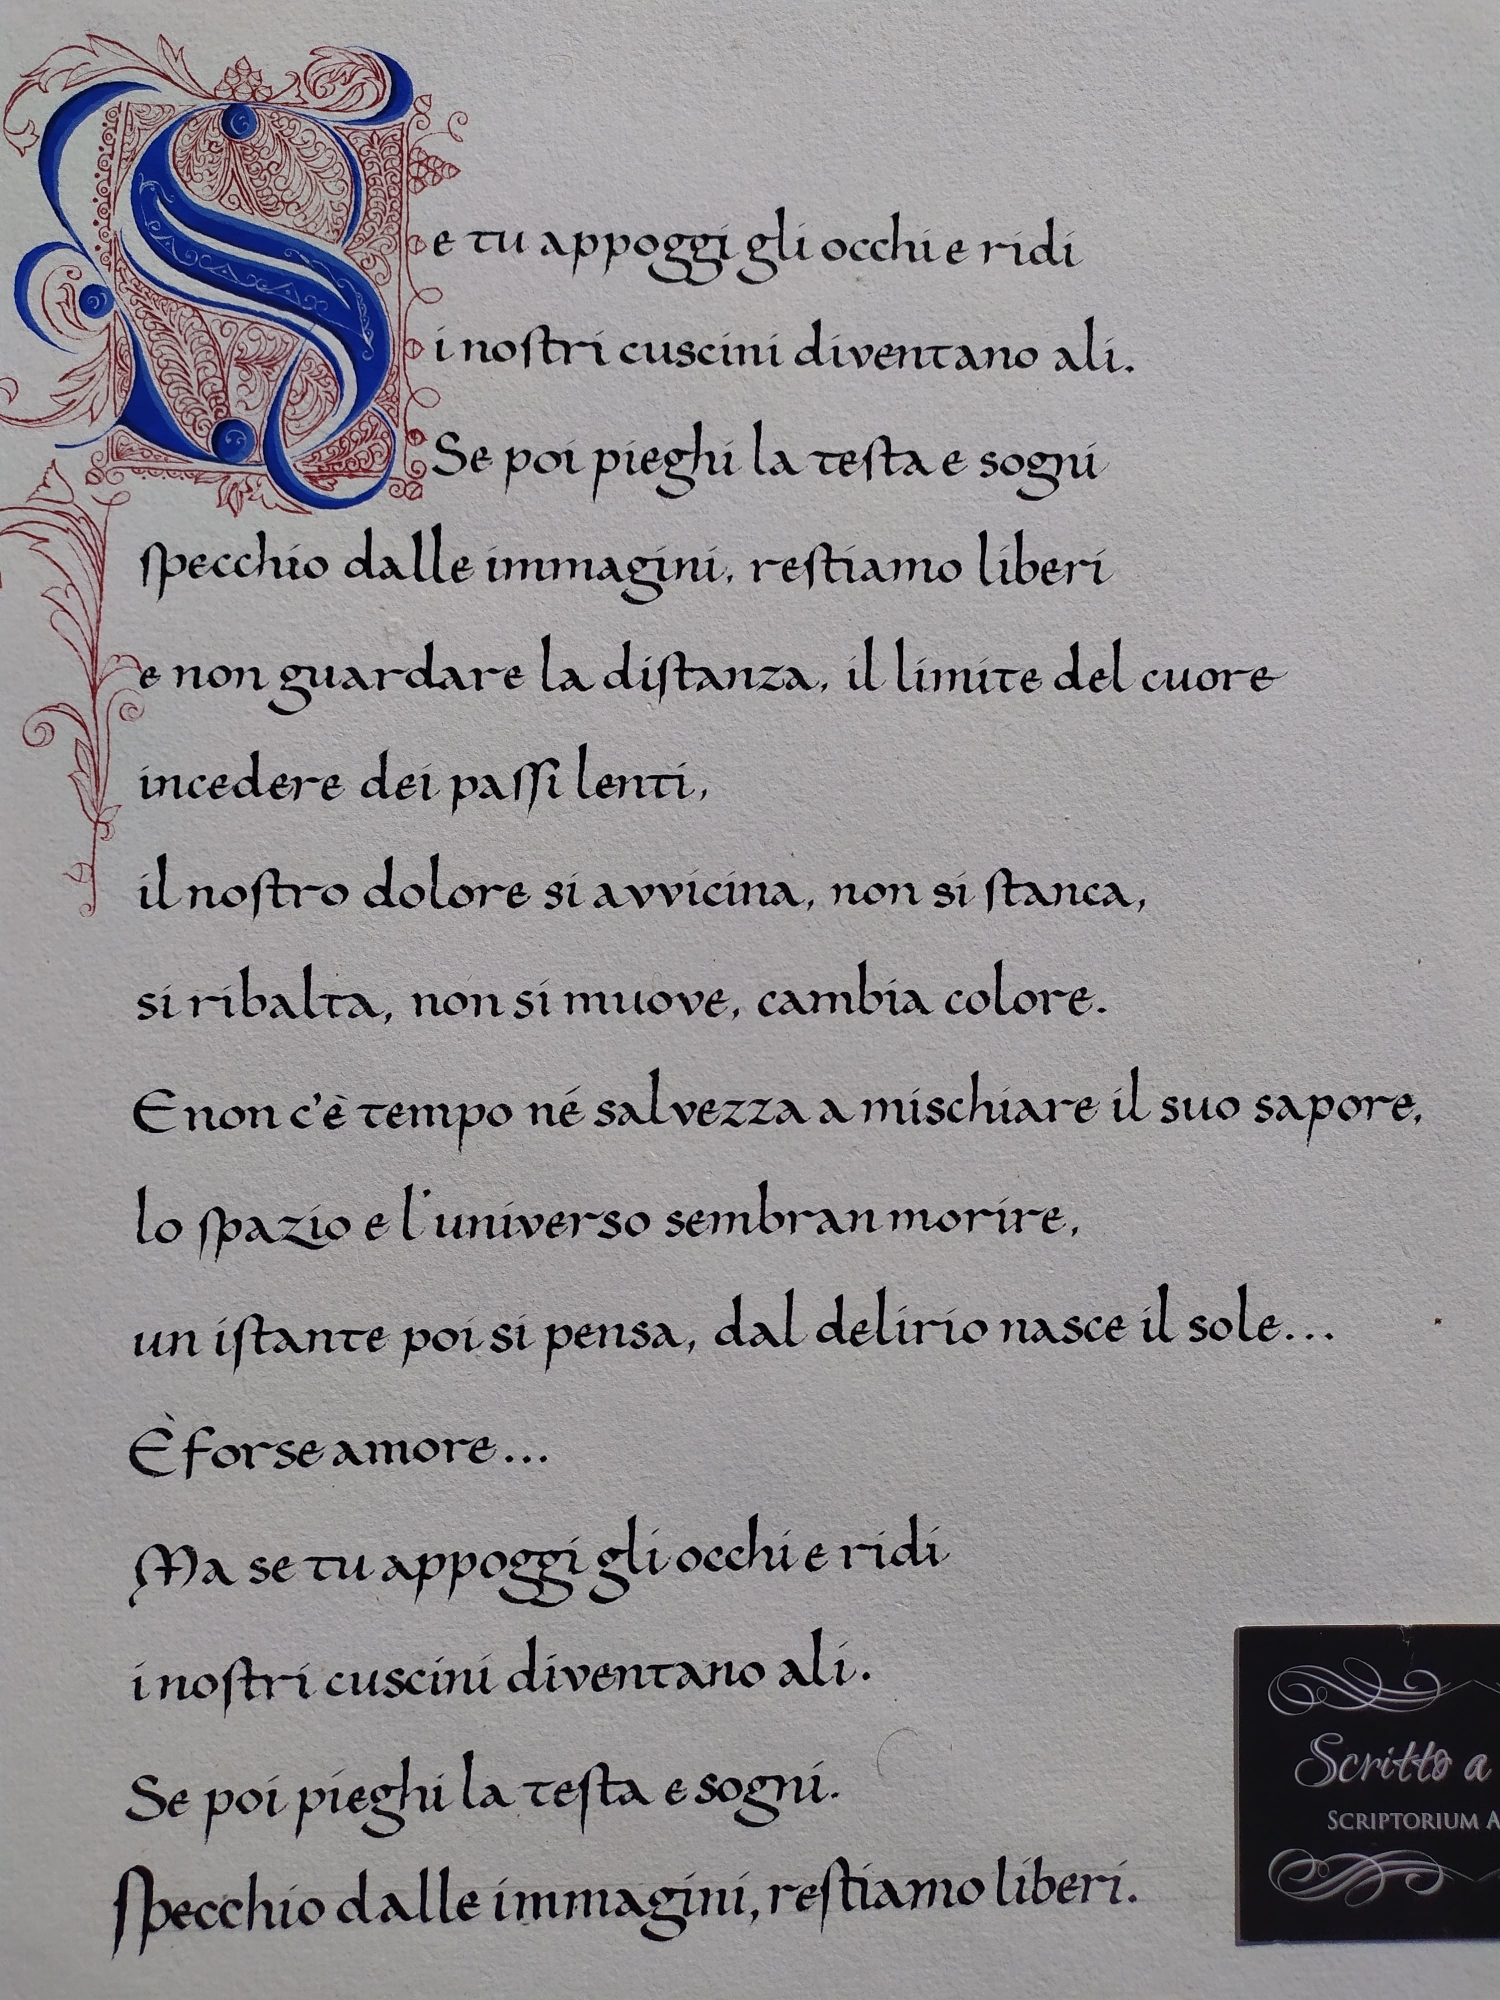 Se tu appoggi gli occhi e ridi
i nostri cuscini diventano ali.
Se poi pieghi la testa e sogni
specchio dalle immagini, restiamo liberi
e non guardare la distanza, il limite del cuore
incedere dei passi lenti,
il nostro dolore si avvicina, non si stanca,
si ribalta, non si muove, cambia colore.
E non c'è tempo né salvezza a mischiare il suo sapore,
lo spazio e l'universo sembran morire,
un istante poi si pensa, dal delirio nasce il sole...
È forse amore...
Ma se tu appoggi gli occhi e ridi
i nostri cuscini diventano ali.
Se poi pieghi la testa e sogni.
specchio dalle immagini, restiamo liberi.
Scritto a
SCRIPTORIUM A